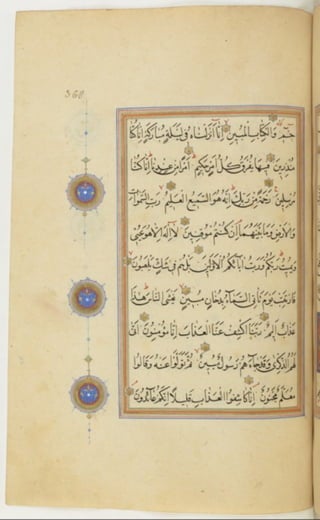 حم والكتاب المبين انا انزلناه في ليلة مباركة انا كنا
منذرين فيها يفرق كل امر حكيم امرا من عندنا انا كنا
مرسلين رحمة من ربك انه هو السميع العليم رب السموات
والارض وما بينهما ان كنتم موقنين لا اله الا هو يحيي
ويميت ربكم ورب آبائكم الاولين بل هم في شك يلعبون
فارتقب يوم تأتي السماء بدخان مبين يغشى الناس هذا
عذاب اليم ربنا اكشف عنا العذاب انا مؤمنون انى
لهم الذكرى وقد جاءهم رسول مبين ثم تولوا عنه وقالوا
معلم مجنون انا كاشفوا العذاب قليلا انكم عائدون